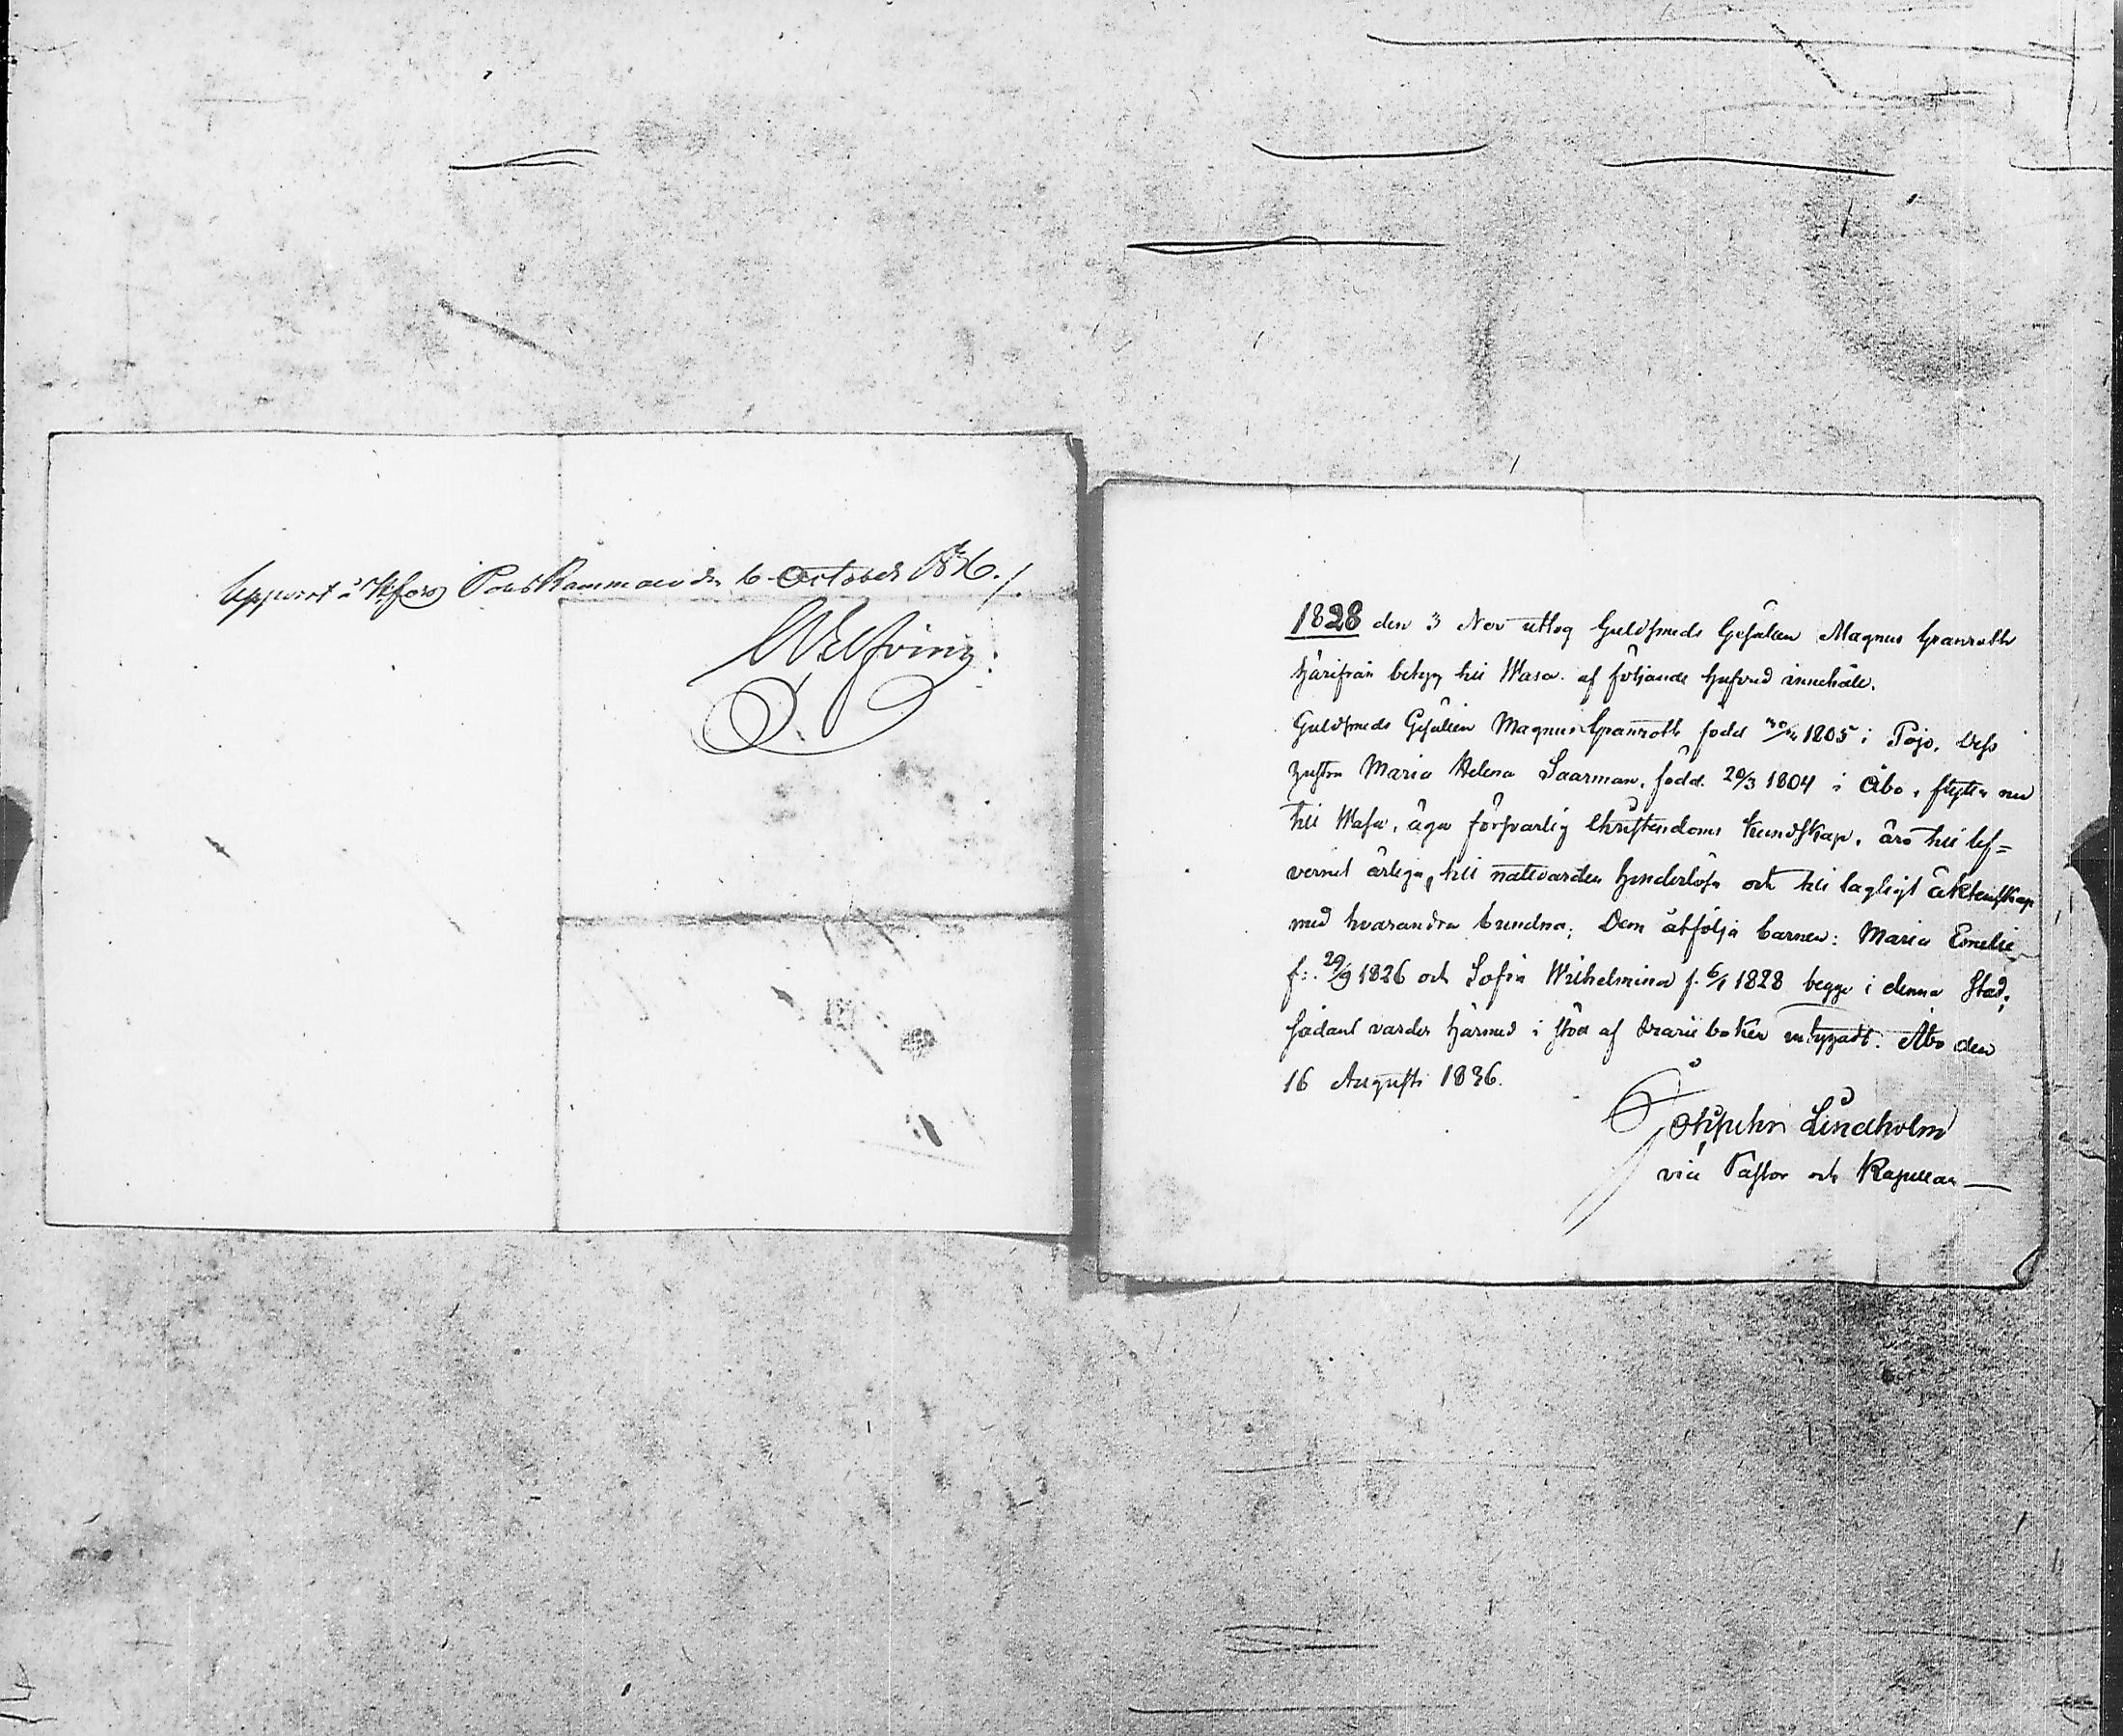 Uppvist å Hfors Polis Kammare den 6 October 1836.
W Elfving
1828 den 3 Nov uttog Guldsmeds Gesällen Magnus Granroth
härifrån betyg till Wasa af följande hufvud innehåll.
Guldsmeds Gesällen Magnus Granroth född 1805 i Pojo, dess
hustru Maria Helena Saarman, född 20/3 1804 i Åbo, flytta nu
till Wasa, äga försvarlig Christendoms kundskap, äro till lef=
vernet ärliga, till nattvarden hinderlösa och till lagligt äktenskap
med hvarandra bundna; Dem åtfölja barnen: Maria Emelie
f: 29/9 1826 och Sofia Wilhelmina f. 6/1 1828 begge i denna Stad;
sådant varder härmed i stöd af kyrkoboken intygadt. Åbo den
16 Augusti 1836.
Lindholm
vice Pastor och Kapellan